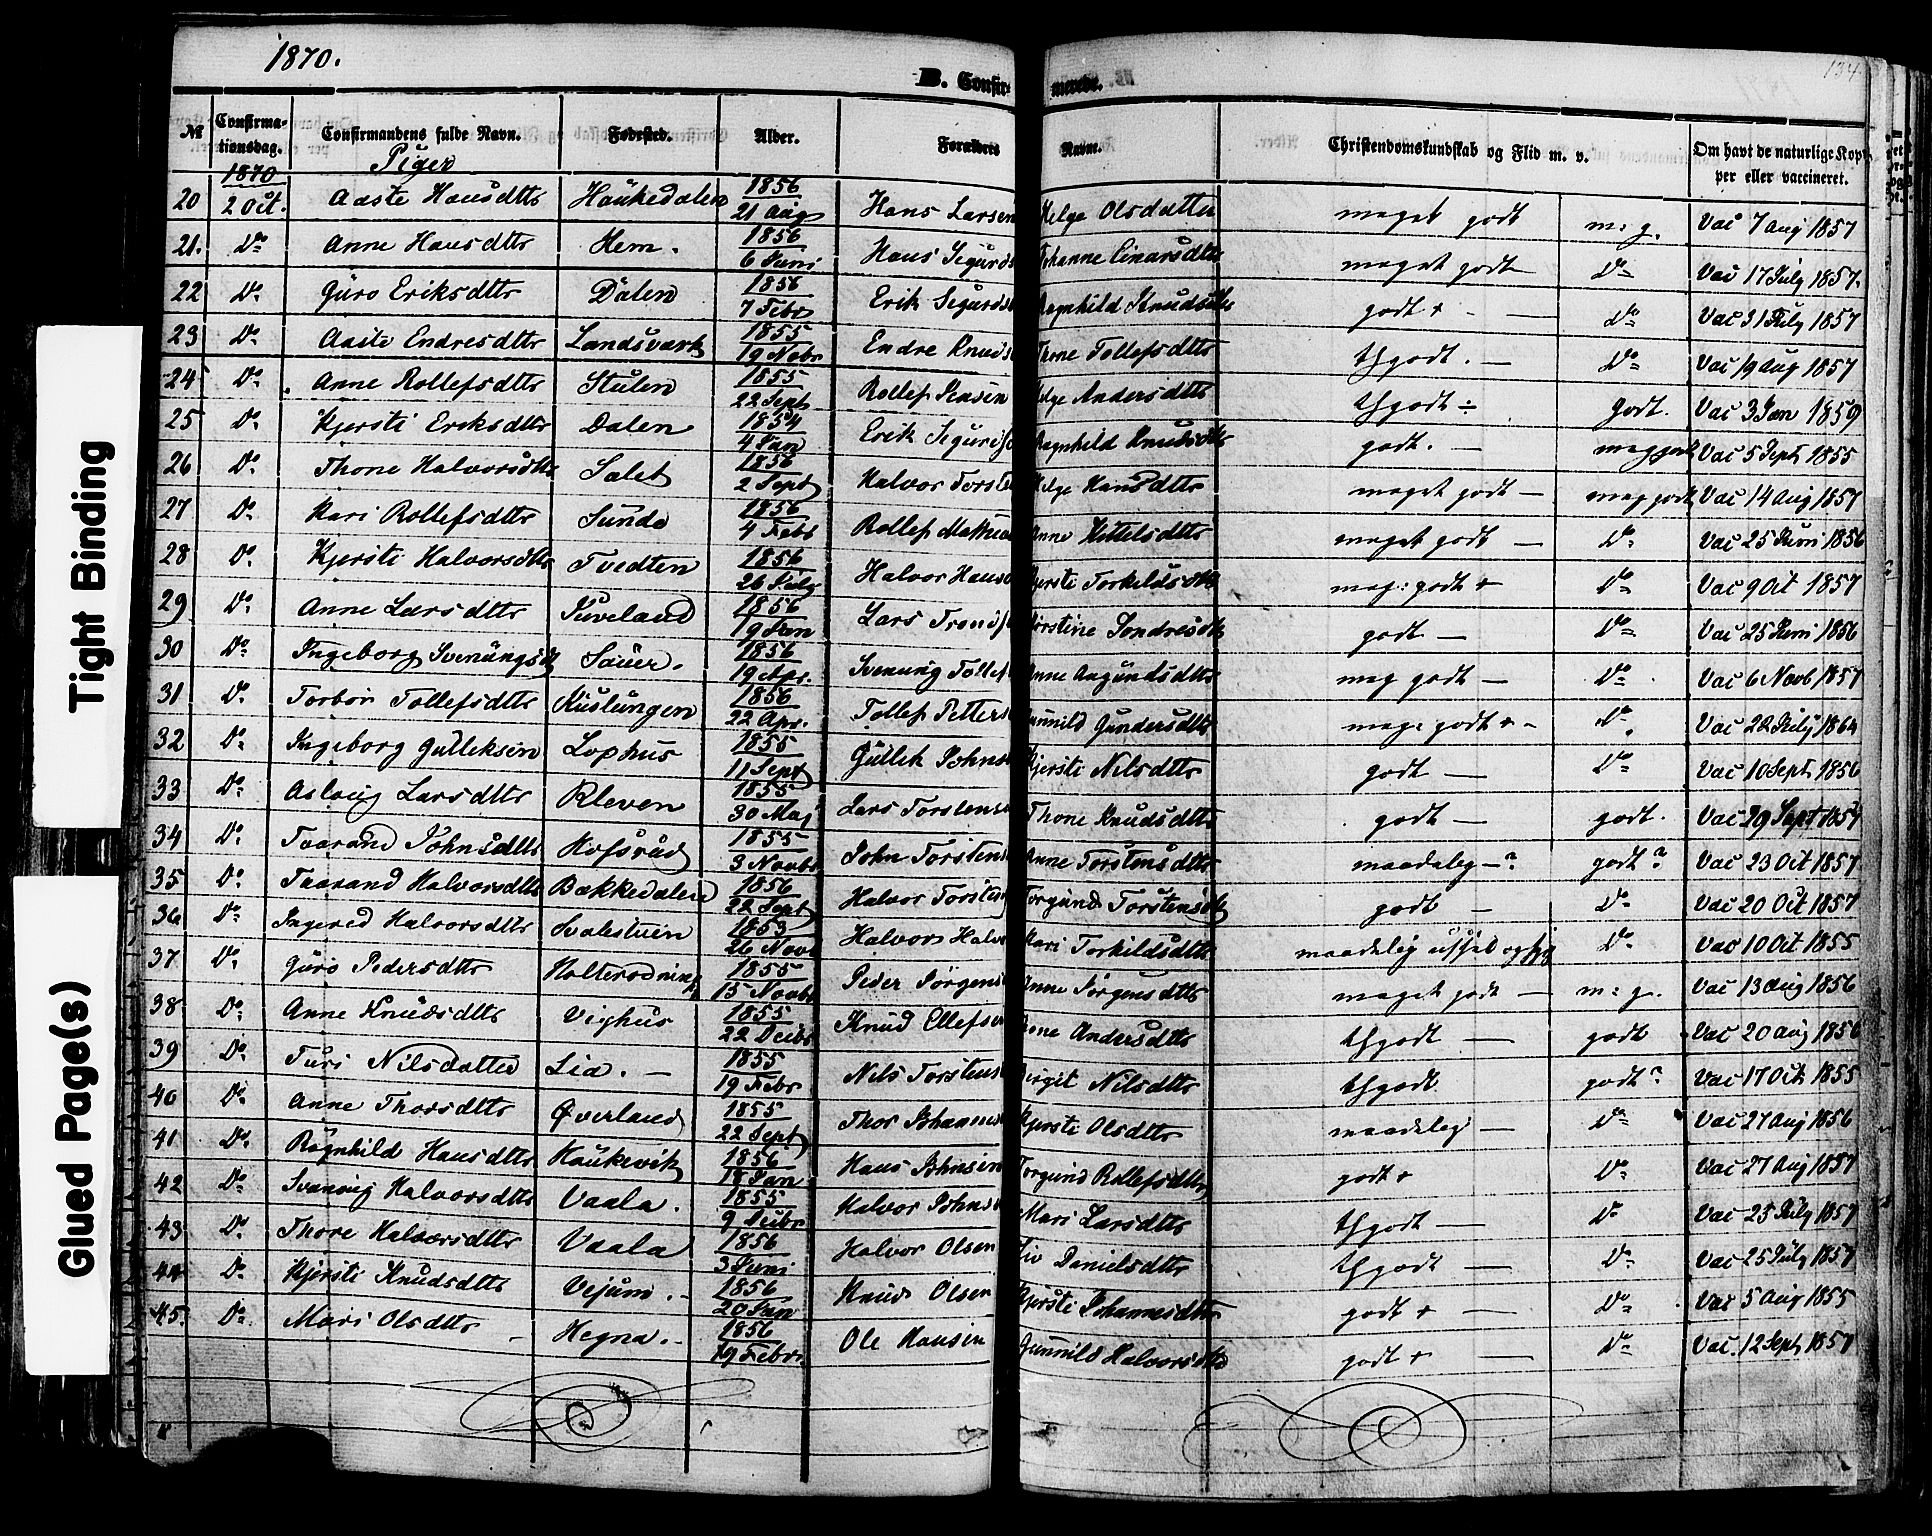 1870.
134.
B. Confir- merede.
№ Confirma-tionsdag. Confirmandens fulde Navn. Fødested. Alder. Forældres Navne. Christendomskundskab og Flid m. v. Om havt de naturlige Kopper eller vaccineret.
1870 Piger
20 2 Oct. Aaste Hansdttr Haukedalen 1856 21 Aug Hans Larsen Helge Olsdatter meget godt m: g. Vac 7 Aug 1857
21. Do Anne Hansdttr Hem. 1856 6 Juni Hans Sigurds Johanne Einarsdttr meget godt Do Vac 17 July 1857.
22 Do Guro Eriksdttr Dalen 1856 7 Febr Erik Sigurds Ragnhild Knudsdttr godt + - Do Vac 31 July 1857
23 Do Aaste Endresdttr Landsværk 1855 19 Nobr Endre Knuds Thone Tollefsdttr thgodt. — Do Vac 19 Aug 1857
24 Do Anne Rollefsdttr Stulen 1855 22 Sept Rollef Jensen Helge Andersdttr thgodt ÷ Godt. Vac 3 Jan 1859
25 Do Kjersti Eriksdttr Dalen 1854 4 Jan Erik Sigurds Ragnhild Knudsdttr godt. - meg godt Vac 5 Sept 1855
26 Do Thone Halvorsdttr Salet 1856 2 Sept Halvor Torste Helge Hansdttr meget godt — meg godt Vac 14 Aug 1857
27 Do Kari Rollefsdttr Sunde 1856 4 Febr Rollef Anne Kittelsdttr meget godt — Do Vac 25 Juni 1856
28 Do Kjersti Halvorsdttr Tvedten 1856 26 July Halvor Hans Kjersti Torkildsdttr meg: godt + Do Vac 9 Oct 1857
29 Do Anne Larsdttr Juveland 1856 19 Jan Lars Trondf Kirstine Sondresdtt godt — Do Vac 25 Juni 1856
30 Do Ingeborg Svenungsdt Sauer. 1856 19 Apr. Svenung Tollef Anne Aagundsdttr meg godt — Do Vac 6 Novb 1857
31 Do Torbor Tollefsdttr Kuslungen 1856 22 Apr. Tollef Petters Gunnild Gundersdttr mege godt + - Do Vac 22 July 1864
32 Do Ingeborg Gulleksen Lophus 1855 11 Sept Gullek Johns Kjersti Nilsdttr godt — Do Vac 10 Sept 1856
33 Do Aslaug Larsdttr Kleven 1855 30 Maj Lars Torstens Thone Knudsdttr godt — godt. Vac 29 Sept 1857
34 Do Taarand Johnsdttr Kofsrud 1855 3 Novbr John Torstens Anne Torstensdttr maadeleg —? godt? Vac 23 Oct 1857
35 Do Taarand Halvorsdttr Bækkedalen 1856 22 Sept Halvor Torstens Torgund Torstensdt godt — Do Vac 20 Oct 1857
36 Do Ingered Halvorsdttr Svalestuen 1853 26 Novb Halvor Halvo Kari Torkildsdttr maadeleg Do Vac 10 Oct 1855
37 Do Guro Pedersdttr Holterodning 1855 15 Novbr Peder Jørgens Anne Jørgensdttr meget godt — m: g. Vac 13 Aug 1856
38 Do Anne Knudsdttr Vighus 1855 22 Decbr Knud Ellefsen Thone Andersdttr thgodt — godt Vac 20 Aug 1856
39 Do Turi Nilsdatter Lia. — 1855 19 Febr Nils Torstens Birgit Nilsdttr thgodt godt? Vac 17 Oct 1855
40 Do Anne Thorsdttr Øverland 1855 22 Sept Thor Johannes Kjersti Olsdttr maadeleg — Do Vac 27 Aug 1856
41 Do Ragnhild Hansdttr Haukevik 1856 18 Jan Hans Johnsen Torgund Rollefsdttr godt + Do Vac 27 Aug 1857
42 Do Svanaug Halvorsdttr Vaala. 1855 9 Decbr Halvor Johns Mari Larsdttr thgodt — Do Vac 25 July 1857
43 Do Thore Halvorsdttr Vaala 1856 3 Juni Halvor Olsen Liv Danielsdttr thgodt — Do Vac 25 July 1857
44 Do Kjersti Knudsdttr Vejum. - 1856 20 Jan Knud Olsen Kjersti Johannesdttr godt + — Do Vac 5 Aug 1855
45. Do Mari Olsdttr - Hegna. - 1856 19 Febr. Ole Hansen Gunnild Halvorsdttr godt + — Do Vac. 12 Sept 1857
Tight Binding
Glued Page(s)